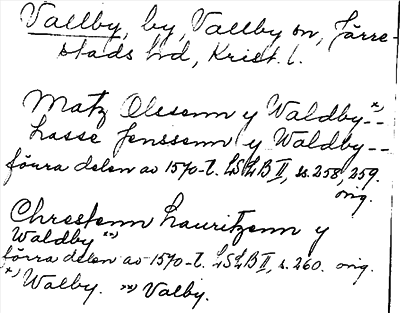 Vallby, by, Vallby sn, Järre-
stads hd, Krist. l.
Matz Olssenn y Waldby *) --
Lasse Jenssenn y Waldby --
förra delen av 1570-t. LSLB II, ss. 258, 259.
orig.
Chrestenn Lauritzenn y
Waldby **)
förra delen av 1570-t. LSLB II, s. 260. orig.
*) Walby. **) Valby.